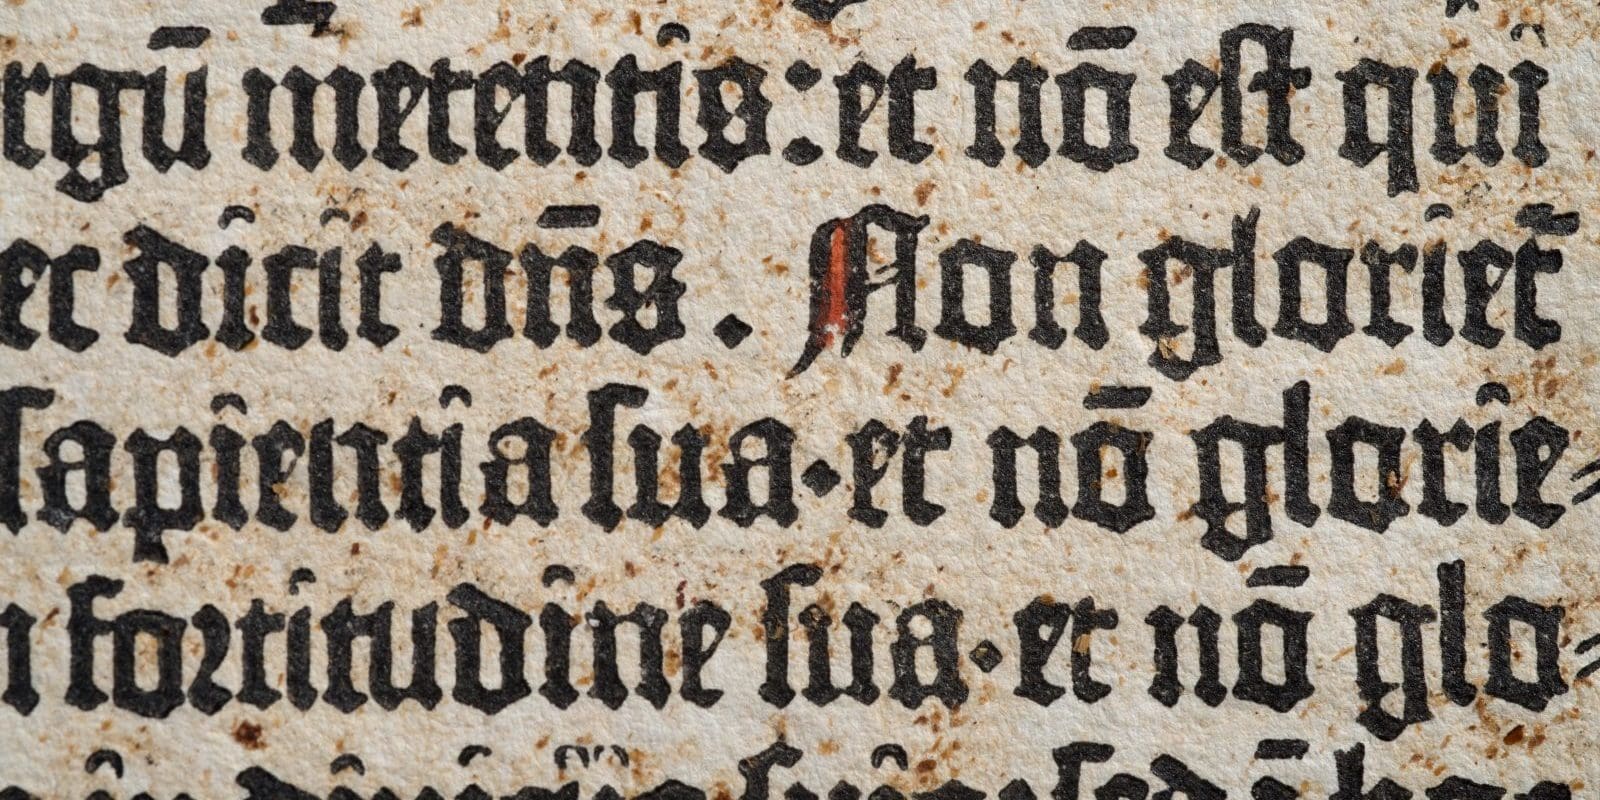 rgū metentis: et nō est qui
ec dicit dn̄s. Non gloriet᷑
sapientia sua· et nō glorie⸗
fortitudine sua· et nō glo⸗